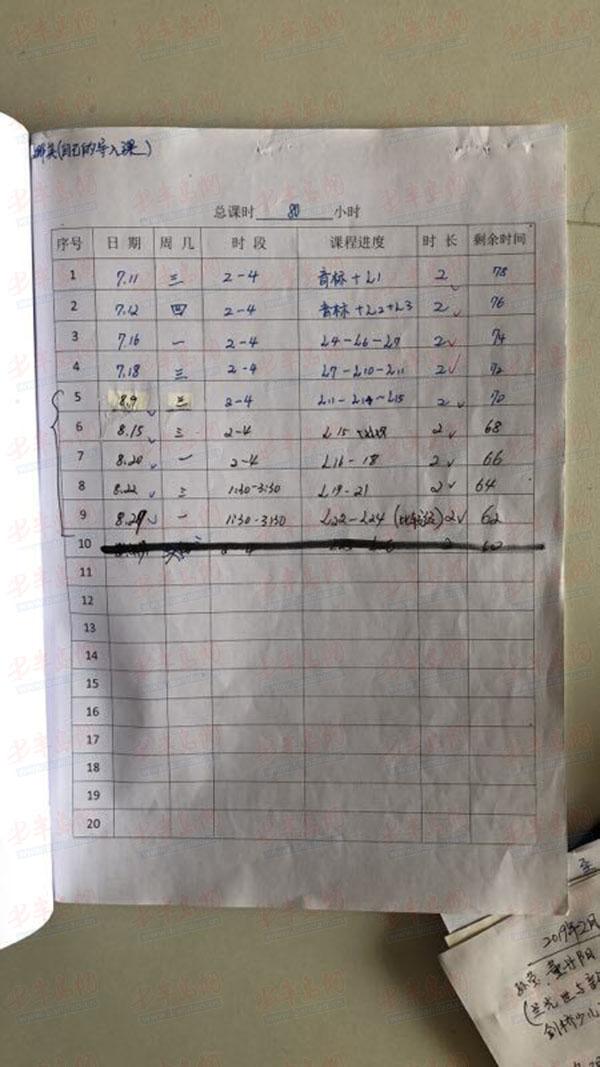 (自己的导入课)
总课时 80 小时
序号 日期 周几 时段 课程进度 时长 剩余时间
1 7.11 三 2-4 音标+L1 2 78
2 7.12 四 2-4 音标+L2+L3 2 76
3 7.16 一 2-4 L4-L6-L7 2√ 74
4 7.18 三 2-4 L7-L10-L11 2√ 72
5 8.9 2-4 L11-L14-L15 2√ 70
6 8.15√ 三 2-4 L15 2√ 68
7 8.20√ 一 2-4 L16-18 2√ 66
8 8.22√ 三 1:30-3:30 L19-21 2√ 64
9 一 1:30-3:30 L22-L24 2√ 62
10
11
12
13
14
15
16
17
18
19
20
2019年2月